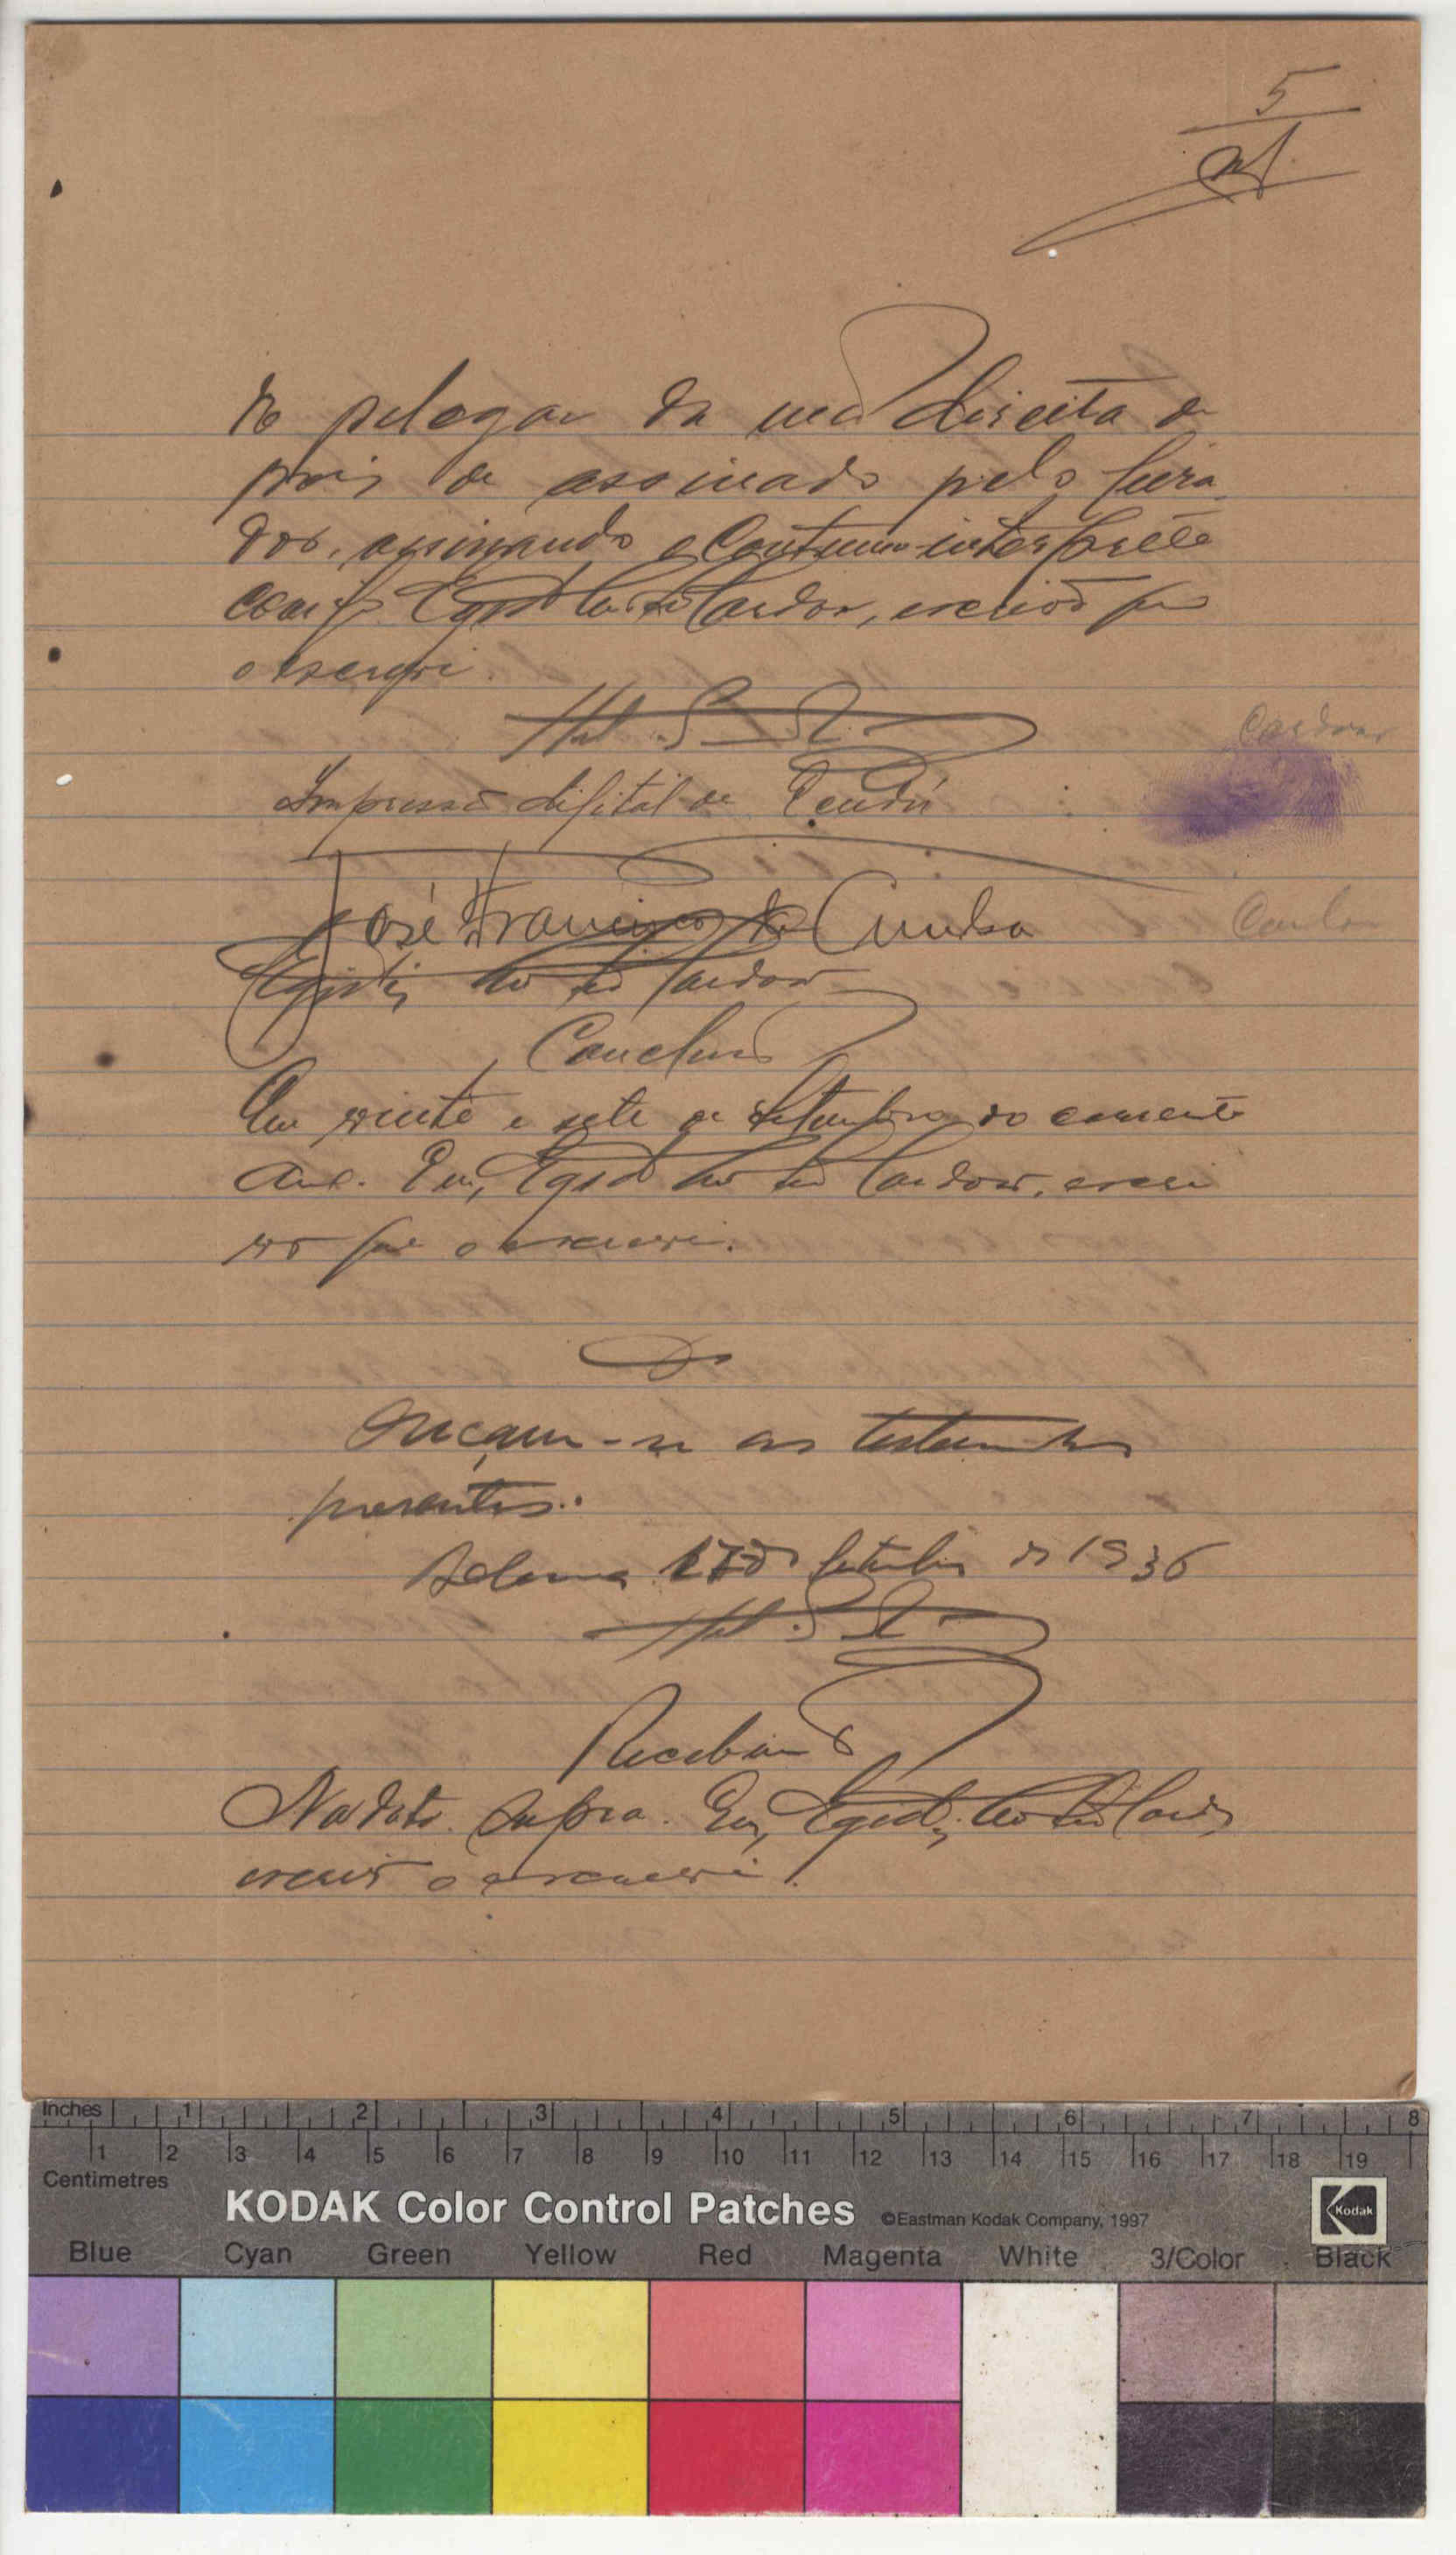 5
do pelegar da mão direita de
pois de assinado pelo Cura
dor, assinando o Contínuo interprete
comigo Egidio Cardoso, escrivão que
o escrevi.
Cardoso
Impressão digital de
José Francisco da Cunha
Egidio Cardoso
Carlos
Conclusão
Em vinte e sete de Setembro do corrente
ano. Eu, Egidio Cardoso, escri
vão que o escrevi.
Ouçam-se as testemunhas
presentes.
27 de Setembro de 1936
Recebim
Na data supra. Eu, Egidio
escrivão o escrevi.
Inches 1 2 3 4 5 6 7 8
1 2 3 4 5 6 7 8 9 10 11 12 13 14 15 16 17 18 19
Centimetres
KODAK Color Control Patches ©Eastman Kodak Company, 1997 Kodak
Blue Cyan Green Yellow Red Magenta White 3/Color Black